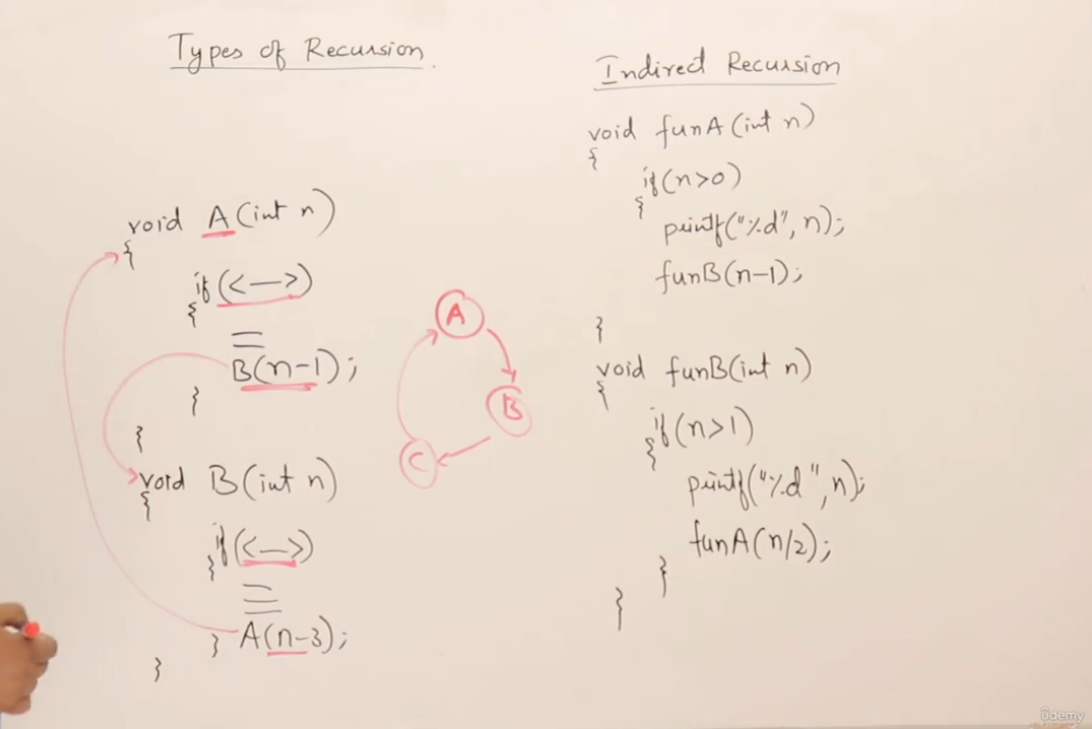 Types of Recursion.
void A(int n)
{
if(<—>)
{
B(n-1);
}
}
void B(int n)
{
if(<—>)
}
A(n-3);
}
}
A
B
C
Indirect Recursion
void funA(int n)
{
if(n>0)
{
printf("%d", n);
funB(n-1);
}
void funB(int n)
{
if(n>1)
{
printf("%d", n);
funA(n/2);
}
}
ûdemy